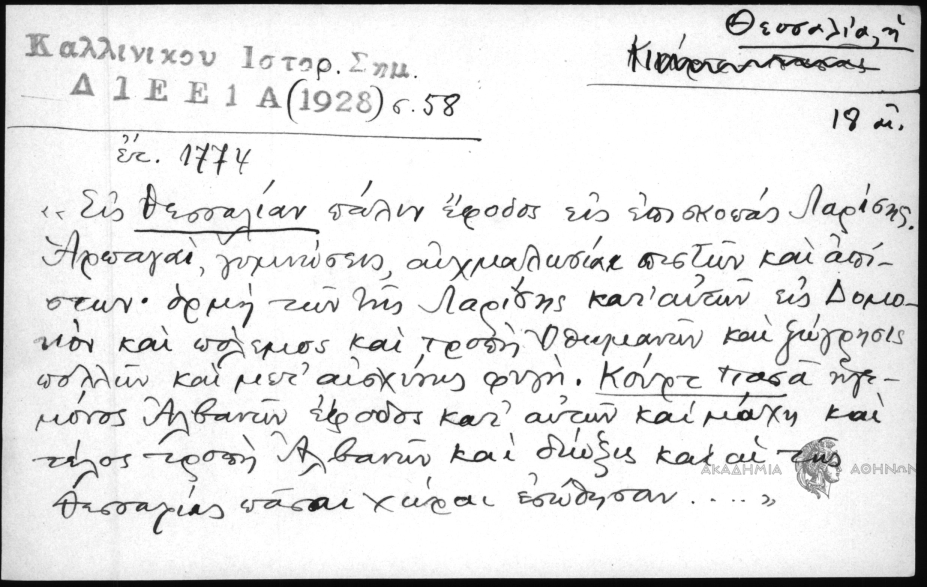 Θεσσαλία, ἡ
Καλλινικου Ιστορ. Σημ.
Δ Ι Ε Ε 1 Α (1928) σ. 58
18 αἰ.
ἔτ. 1774
«Εἰς Θεσσαλίαν πάλιν ἔφοδος εἰς ἐπισκοπὰς Λαρίσης.
Ἁρπαγαὶ, γυμνώσεις, αἰχμαλωσίαι πιστῶν καὶ ἀπί-
στων· ὁρμὴ τῶν τῆς Λαρίσης κατ' αὐτῶν εἰς Δομο-
κὸν καὶ πόλεμος καὶ τροπὴ Ὀθωμανῶν καὶ ζώγρησις
πολλῶν καὶ μετ' αἰσχύνης φυγή. Κούρτ Πασᾶ ἡγε-
μόνος Ἀλβανῶν ἔφοδος κατ' αὐτῶν καὶ μάχη καὶ
τέλος τροπὴ Ἀλβανῶν καὶ δίωξις καὶ αἱ τῆς
ΑΚΑΔΗΜΙΑ ΑΘΗΝΩΝ
Θεσσαλίας πᾶσαι χῶραι ἐσώθησαν ....»